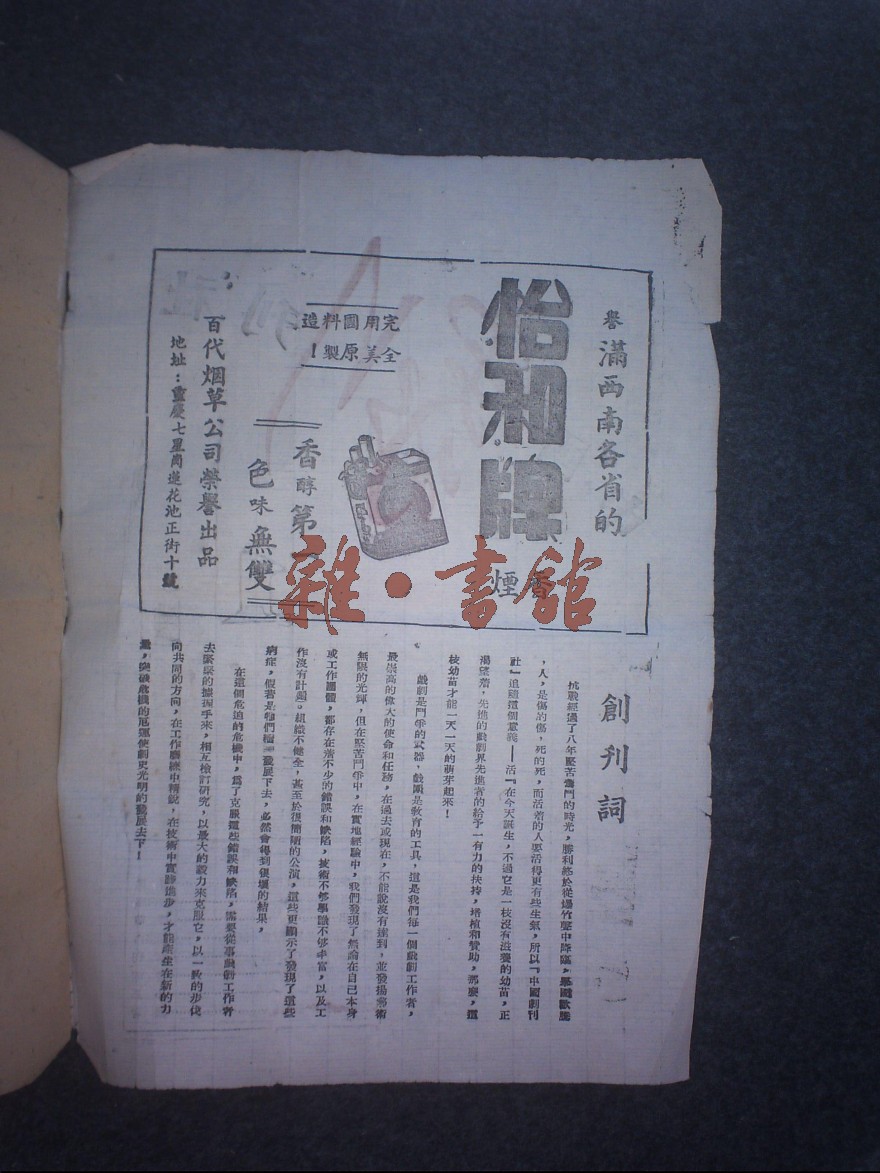 譽滿西南各省的
怡和牌
香煙
完全用美國原料製造！
香醇第
色味無雙
百代烟草公司榮譽出品
地址：重慶七星崗蓮花池正街十號
雜·書館
創刊詞
抗戰經過了八年堅苦奮鬥的時光，勝利終於從爆竹聲中降臨，
，人，是傷的傷，死的死，而活着的人要活得更有些生氣，所以『中國劇刊
社』追隨這個意義——活『在今天誕生，不過它是一枝沒有滋養的幼苗，正
渴望着，先進的戲劇界先進者的給予一有力的扶持，培植和贊助，那麼，這
枝幼苗才能一天一天的萌芽起來！
戲劇是鬥爭的武器，戲劇是教育的工具，這是我們每一個戲劇工作者，
最崇高的偉大的使命和任務，在過去或現在，不能說沒有達到，並發揚藝術
無限的光輝，但在堅苦鬥爭中，在實地經驗中，我們發現了無論在自己本身
或工作團體，都存在着不少的錯誤和缺陷，技術不够學識不够丰富，以及工
作沒有計劃。組織不健全，甚至於很簡陋的公演，這些更顯示了發現了這些
病症，假若是物們權發展下去，必然會得到很壞的結果，
在這個危迫的危機中，爲了克服這些錯誤和缺陷，需要從事戲劇工作者
去緊緊的擄握手來，相互檢討研究，以最大的毅力來克服它，以一致的步伐
向共同的方向，在工作磨練中精銳，在技術中實踐進步，才能產生在新的力
量，突破危機的厄運使劇更光明的發展去下！